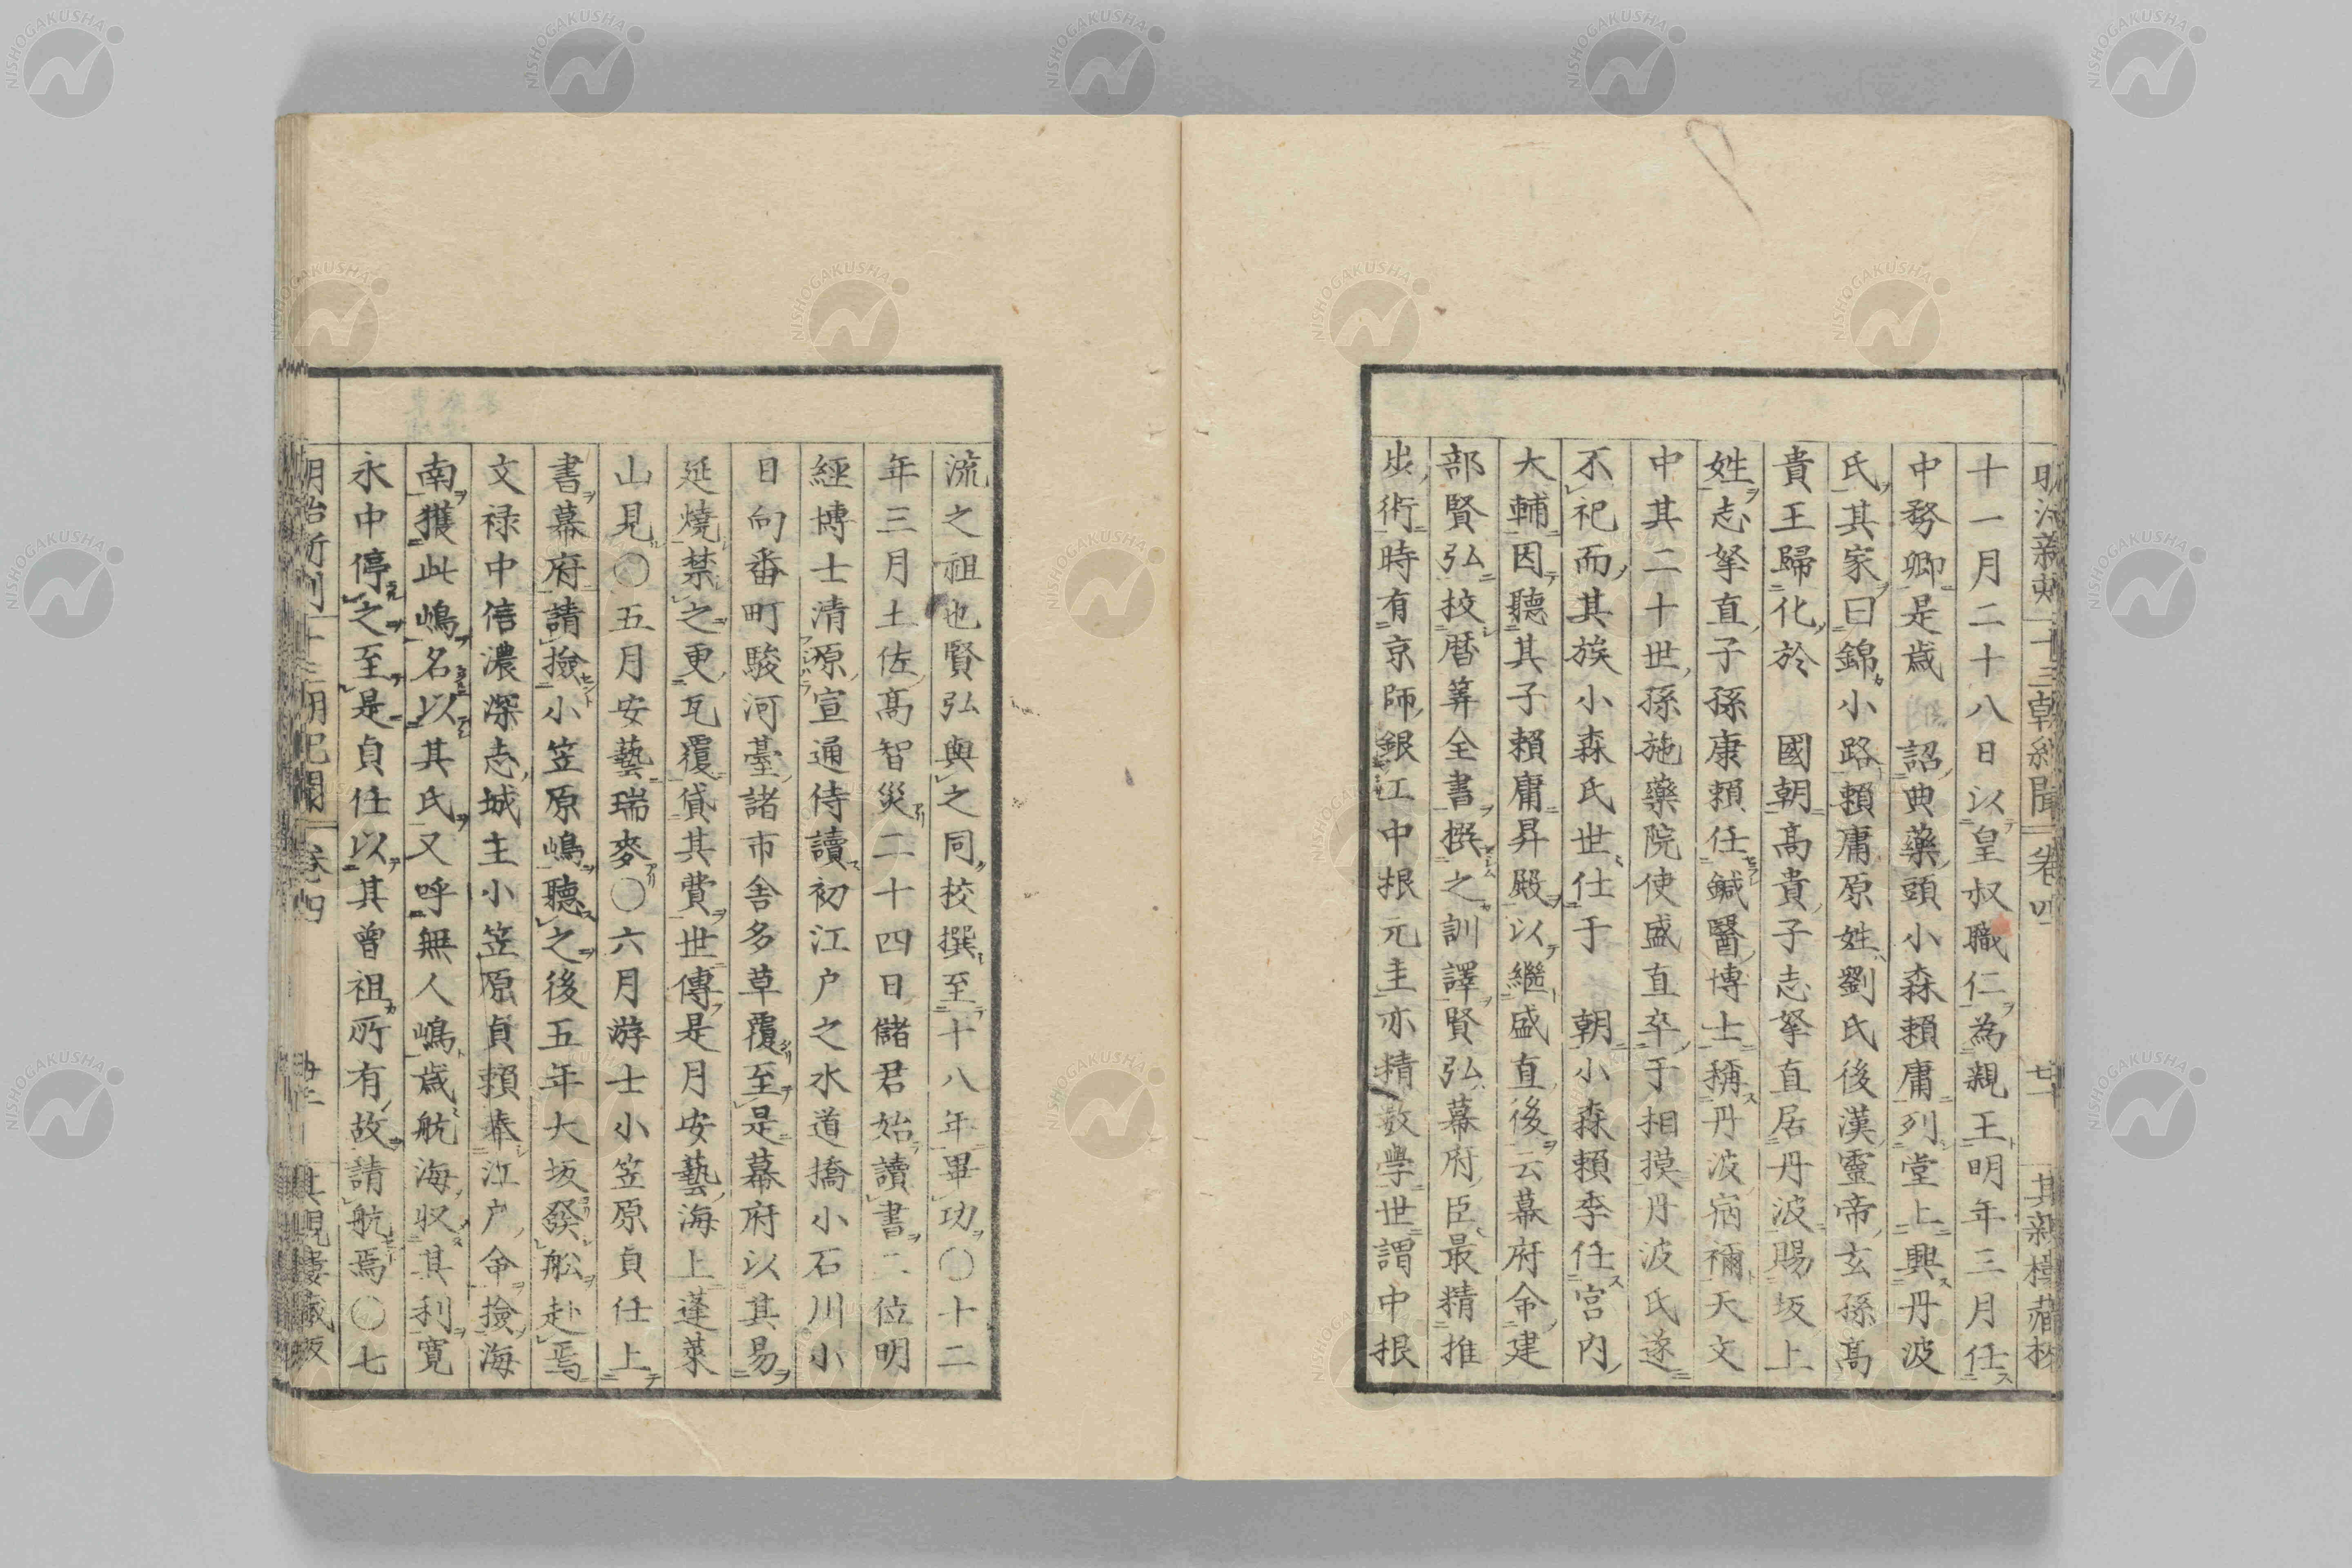 十一月二十八日以皇叔職仁為親王明年三月任
中務卿是歳 詔典藥頭小森頼庸列堂上興丹波
氏其家曰錦小路頼庸原姓劉氏後漢靈帝玄孫高
貴王歸化於 國朝高貴子志拏直居丹波賜坂上
姓志拏直子孫康頼任鍼醫博士稱丹波宿禰天文
中其二十世孫施藥院使盛直卒于相摸丹波氏遂
不祀而其族小森氏世仕于 朝小森頼季任宮内
大輔因聽其子頼庸昇殿以繼盛直後云幕府命建
部賢弘挍暦筭全書撰之訓譯賢弘幕府臣最精推
歩術時有京師銀工中根元圭亦精數學世謂中根
流之祖也賢弘與之同挍撰至十八年畢功〇十二
年三月土佐高智災二十四日儲君始讀書二位明
經博士清原宣通侍讀初江戸之水道橋小石川小
日向番町駿河臺諸市舎多草覆至是幕府以其易
延燒禁之更瓦覆貸其費世傳是月安藝海上蓬萊
山見〇五月安藝瑞麥〇六月游士小笠原貞任上
書幕府請撿小笠原嶋聽之後五年大坂發舩赴焉
文禄中信濃深志城主小笠原貞頼奉江戸命撿海
南獲此嶋名以其氏又呼無人嶋歳航海収其利寛
永中停之至是貞任以其曽祖所有故請航焉〇七